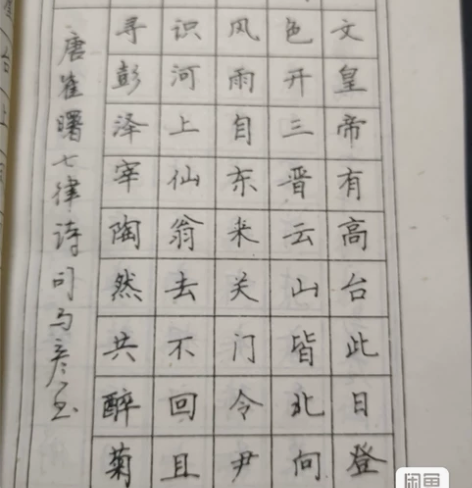 文皇帝有高台此日登
色开三晋云山皆北向
风雨自东来关门令尹
识河上仙翁去不回且
寻彭泽宰陶然共醉菊
唐崔曙七律诗司马彦书
闲鱼